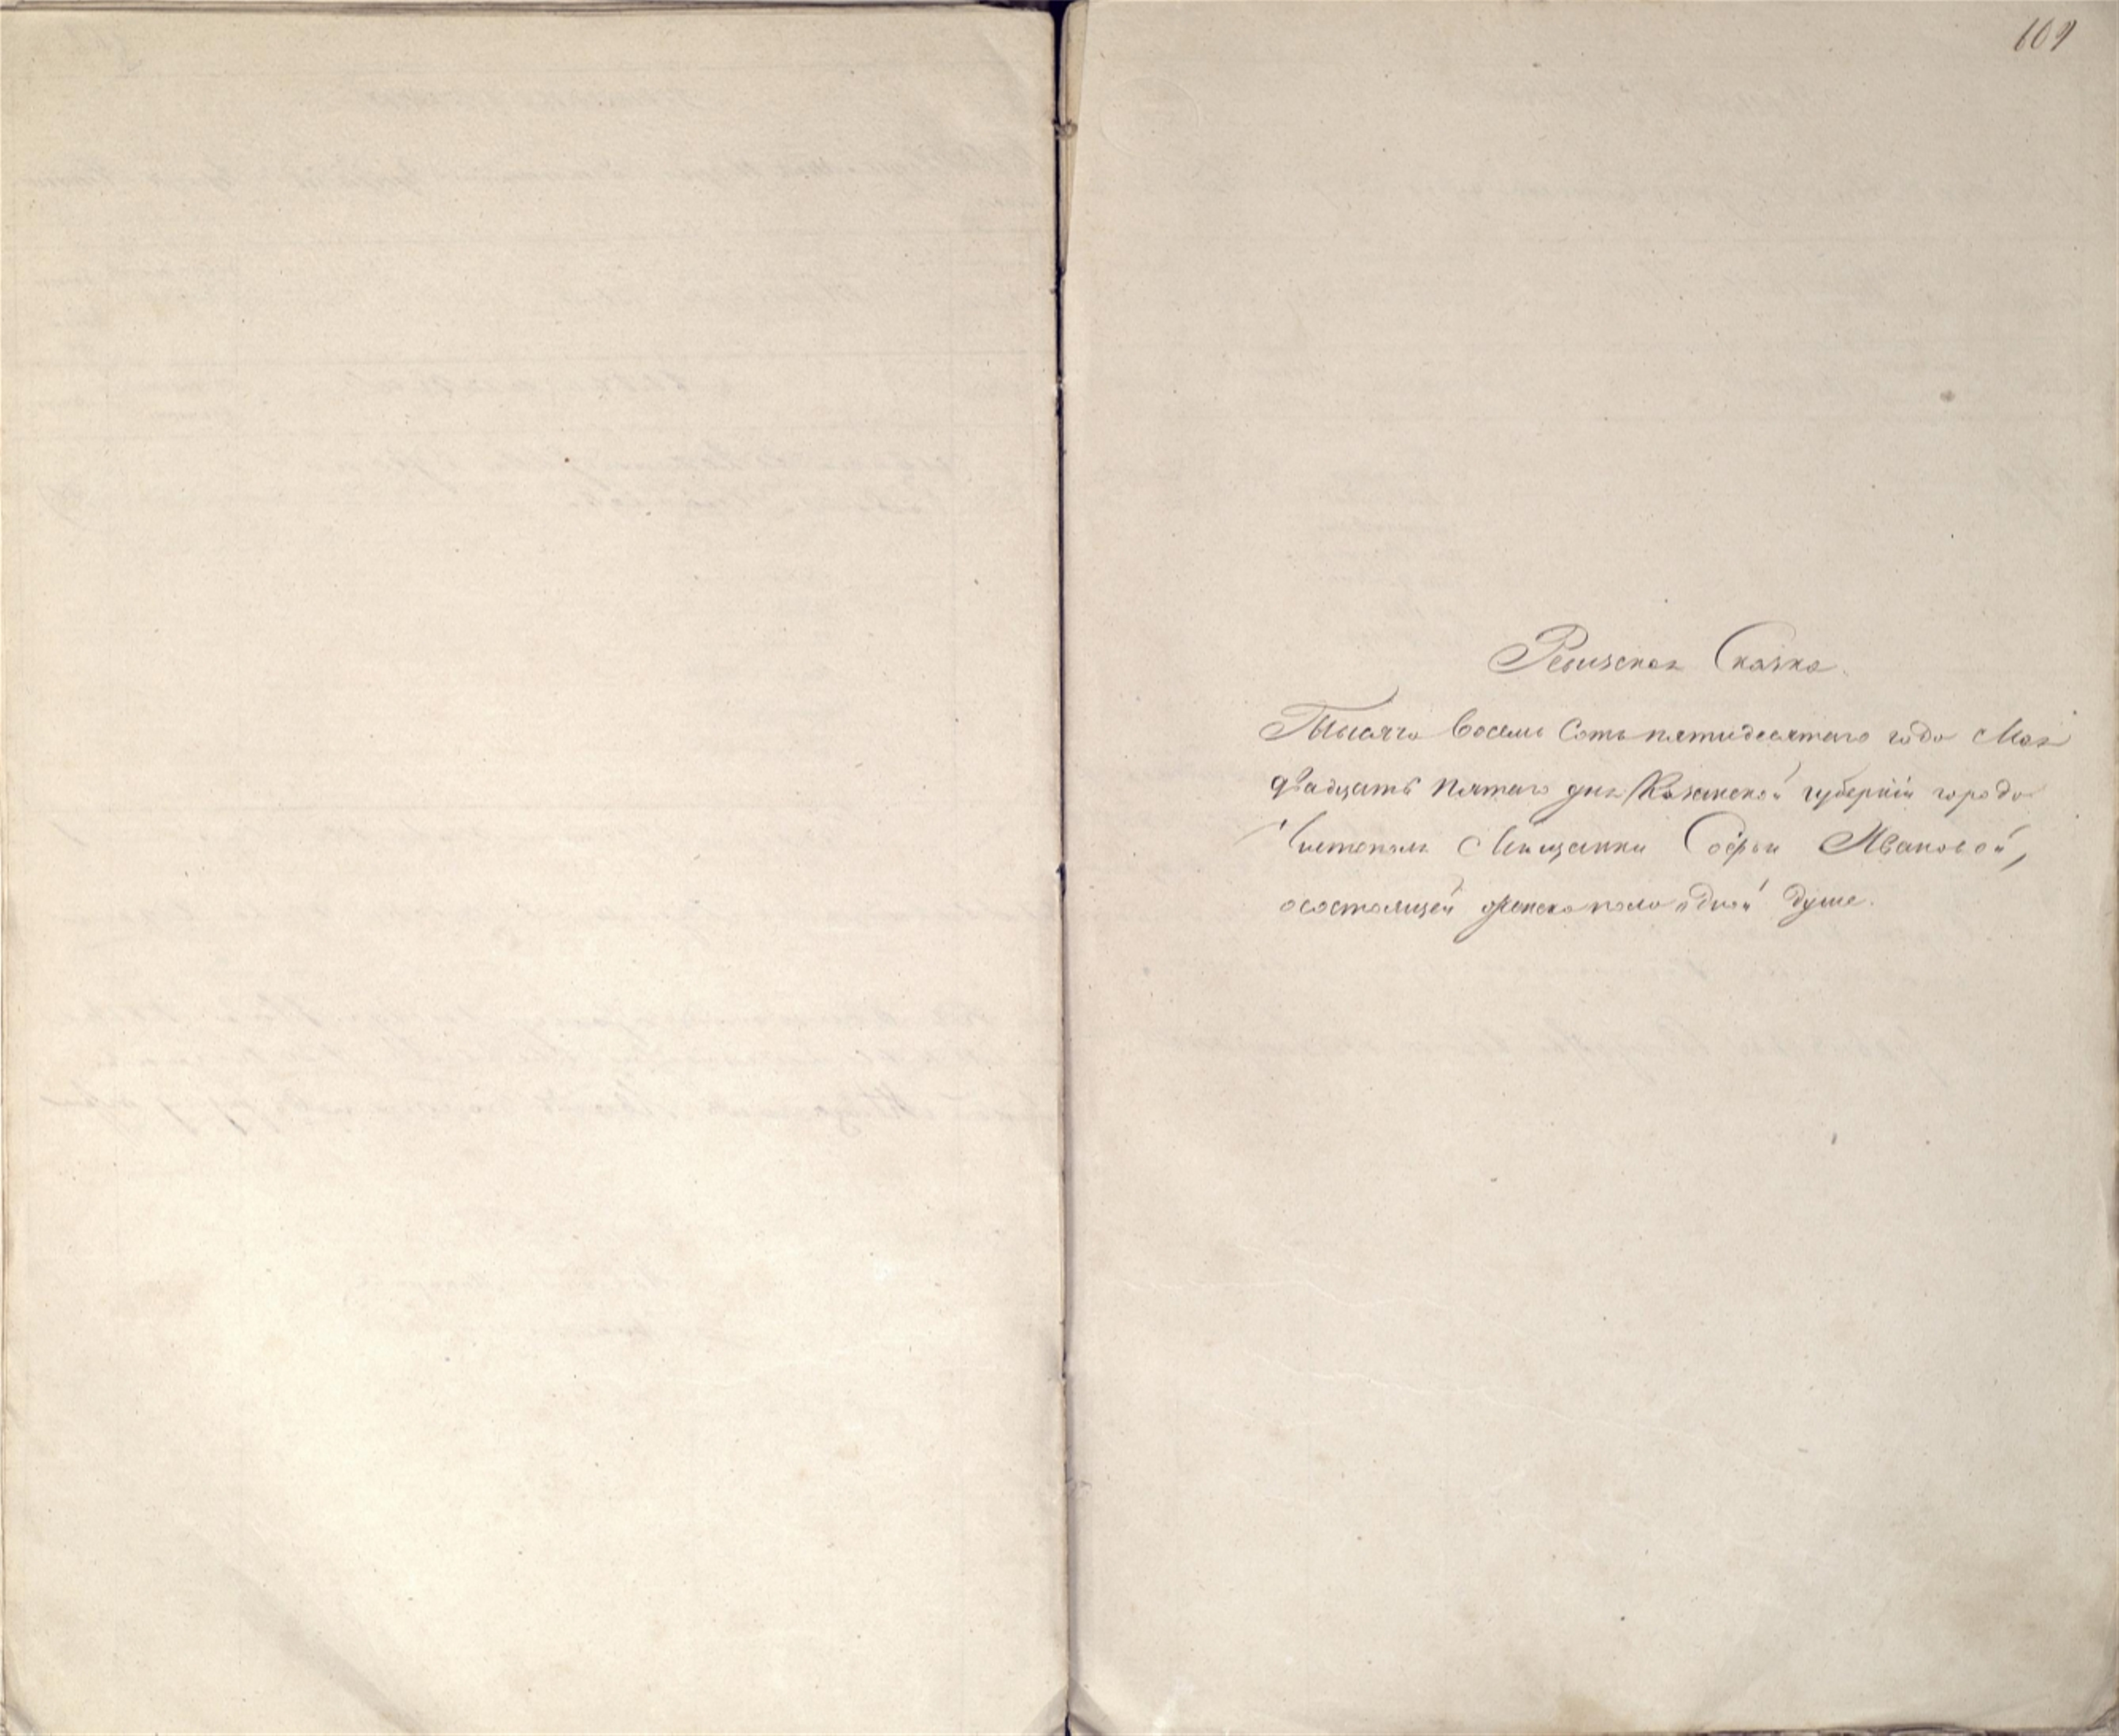 109
Ревизская Сказка.
Тысяча восемь сотъ пятидесятаго года Мая
двадцать пятаго дня Казанской губерніи города
Чистополя Мѣщанки Софьи Ивановой,
о состоящей женска пола одной душе.